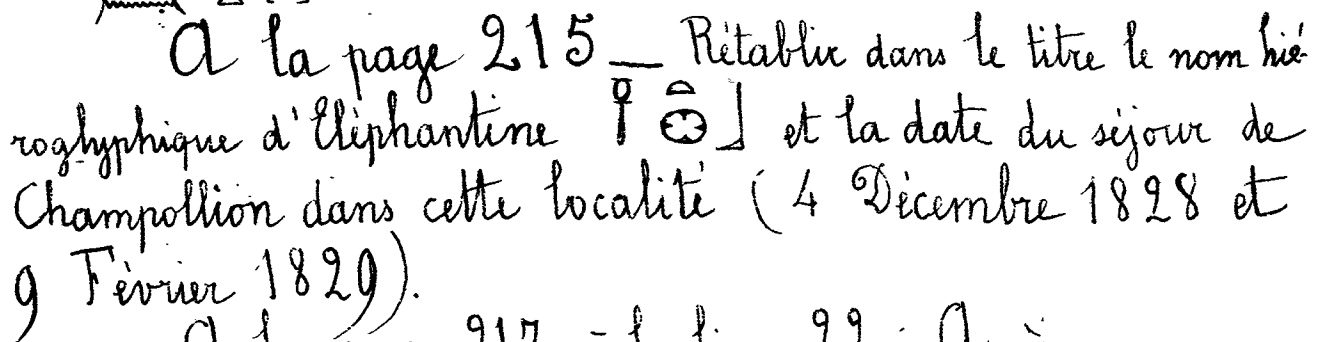 A la page 215 — Rétablir dans le titre le nom hié-
roglyphique d'Eléphantine et la date du séjour de
Champollion dans cette localité (4 Décembre 1828 et
9 Février 1829).